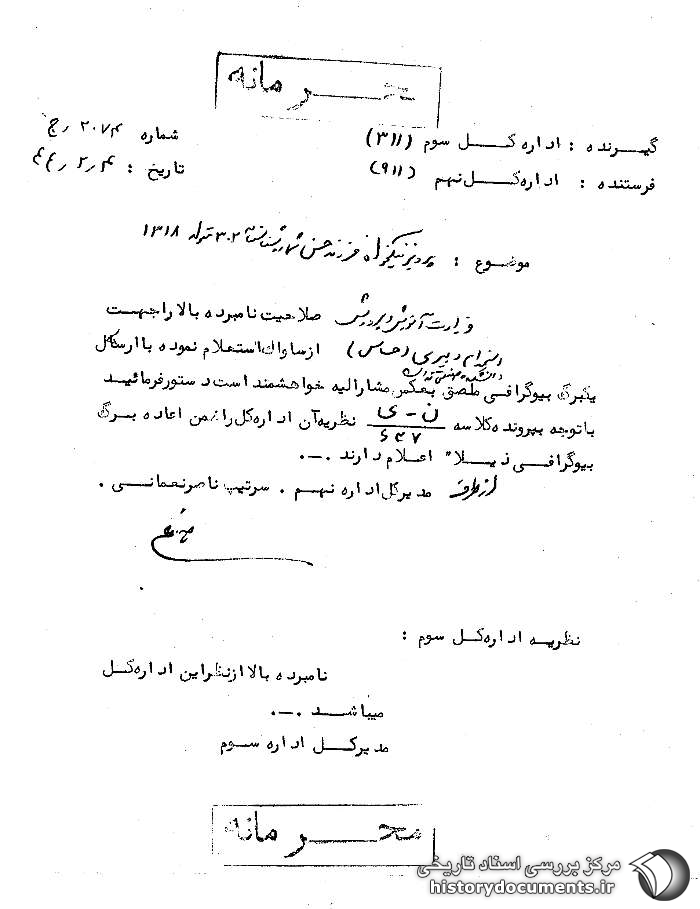 محرمانه
گیرنده : اداره کل سوم (۳۱۱)
شماره ۲۰۷۴ رج
فرستنده : اداره کل نهم (۹۱۱)
تاریخ : ۴۴٫۲٫۴
موضوع : پرویز نیکخواه فرزند حسن شماره شناسنامه ۳۰۲ متولد ۱۳۱۸
وزارت آموزش و پرورش صلاحیت نامبرده بالا را جهت
استخدام دبیری (حساس) از ساواک استعلام نموده با ارسال
دانشکده صنعتی تهران
یکبرگ بیوگرافی ملصق بعکس مشارالیه خواهشمند است دستور فرمائید
با توجه بپرونده کلاسه ن-ی ۶۴۷ نظریه آن اداره کل را ضمن اعاده برگ
بیوگرافی ذیلا" اعلام دارند .-.
از طرف مدیر کل اداره نهم . سرتیپ ناصر نعمانی .
نظریه اداره کل سوم :
نامبرده بالا از نظر این اداره کل
میباشد .-.
مدیر کل اداره سوم
محرمانه
مرکز بررسی اسناد تاریخی
historydocuments.ir